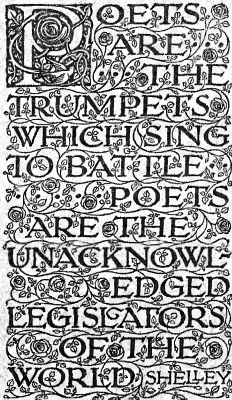 POETS
ARE
THE
TRUMPETS
WHICH SING
TO BATTLE
POETS
ARE THE
UNACKNOWL-
EDGED
LEGISLATORS
OF THE
WORLD SHELLEY